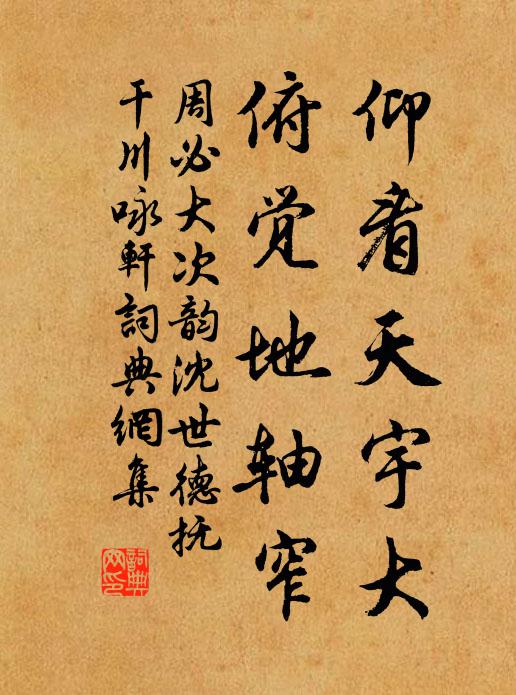 仰看天宇大
俯觉地轴窄
周必大次韵沈世德抚
干川咏軒詞典網集
詞典网印